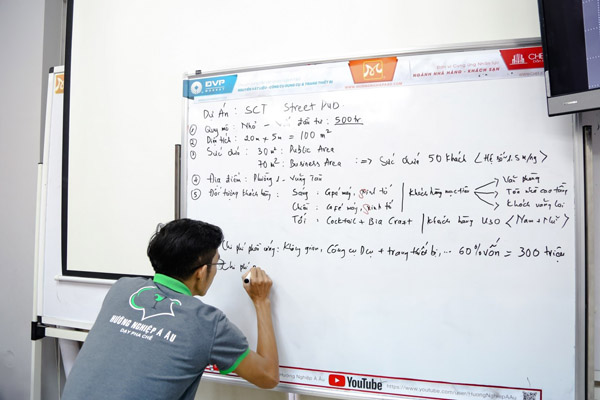 BVP
MARKET
NGÀNH NHÀ HÀNG - KHÁCH SẠN
CHE
Dự Án : SCT Street Pub
① Quy mô : Nhỏ - Vốn đầu tư : 500tr
② Diện tích : 20m x 5m = 100 m²
③ Sức chứa : 30 m² : Public Area
70 m² : Business Area :=> Sức chứa 50 khách (Hệ số 1.5m/ng)
④ Địa điểm : Phường 1 - Vũng Tàu
⑤ Đối tượng khách hàng : Sáng : Cafe máy, sinh tố
Khách hàng mục tiêu
Văn phòng
Toà nhà cao tầng
Khách vãng lai
Chiều : Cafe máy, sinh tố
Tối : Cocktail + Bia Craft | Khách hàng (Nam + Nữ)
Chi phí phần cứng : Không gian, Công cụ Dcụ + trang thiết bị, ... 60% vốn = 300 triệu
Chi phí
HƯỚNG NGHIỆP Á ÂU
DẠY PHA CHẾ
Hướng Nghiệp Á Âu
YouTube
https://www.youtube.com/user/HuongNghiepAAu